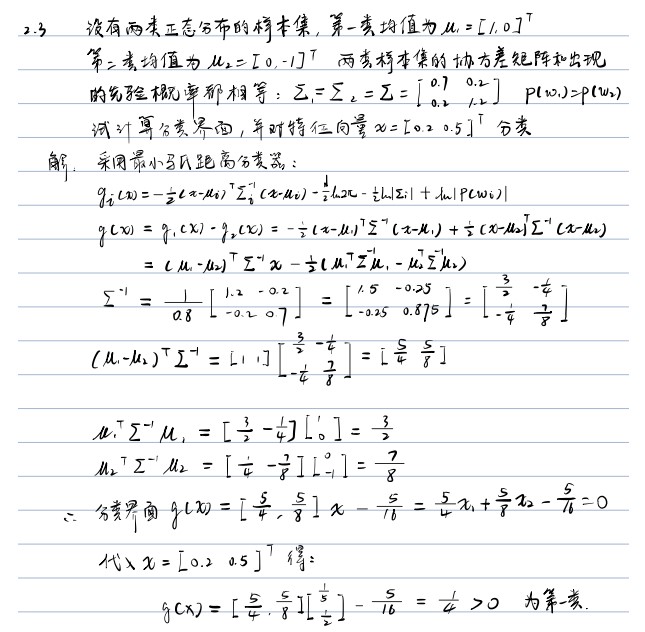 2.3 设有两类正态分布的样本集，第一类均值为 μ₁=[1,0]ᵀ
第二类均值为 μ₂=[0,-1]ᵀ 两类样本集的协方差矩阵和出现
的先验概率都相等：Σ₁=Σ₂=Σ=[0.7 0.2; 0.2 1.2] p(w₁)=p(w₂)
试计算分类界面，并对特征向量 x=[0.2 0.5]ᵀ 分类
解. 采用最小马氏距离分类器：
gᵢ(x)=-½(x-μᵢ)ᵀΣᵢ⁻¹(x-μᵢ)-d/2 ln2π-½ln|Σᵢ|+ln|P(wᵢ)|
g(x)=g₁(x)-g₂(x)=-½(x-μ₁)ᵀΣ⁻¹(x-μ₁)+½(x-μ₂)ᵀΣ⁻¹(x-μ₂)
=(μ₁-μ₂)ᵀΣ⁻¹x-½(μ₁ᵀΣ⁻¹μ₁-μ₂ᵀΣ⁻¹μ₂)
Σ⁻¹=1/0.8[1.2 -0.2; -0.2 0.7]=[1.5 -0.25; -0.25 0.875]=[3/2 -1/4; -1/4 7/8]
(μ₁-μ₂)ᵀΣ⁻¹=[1 1][3/2 -1/4; -1/4 7/8]=[5/4 5/8]
μ₁ᵀΣ⁻¹μ₁=[3/2 -1/4][1; 0]=3/2
μ₂ᵀΣ⁻¹μ₂=[1/4 -7/8][0; -1]=7/8
∴ 分类界面 g(x)=[5/4, 5/8]x-5/16=5/4x₁+5/8x₂-5/16=0
代入 x=[0.2 0.5]ᵀ 得：
g(x)=[5/4, 5/8][1/5; 1/2]-5/16=1/4>0 为第一类.